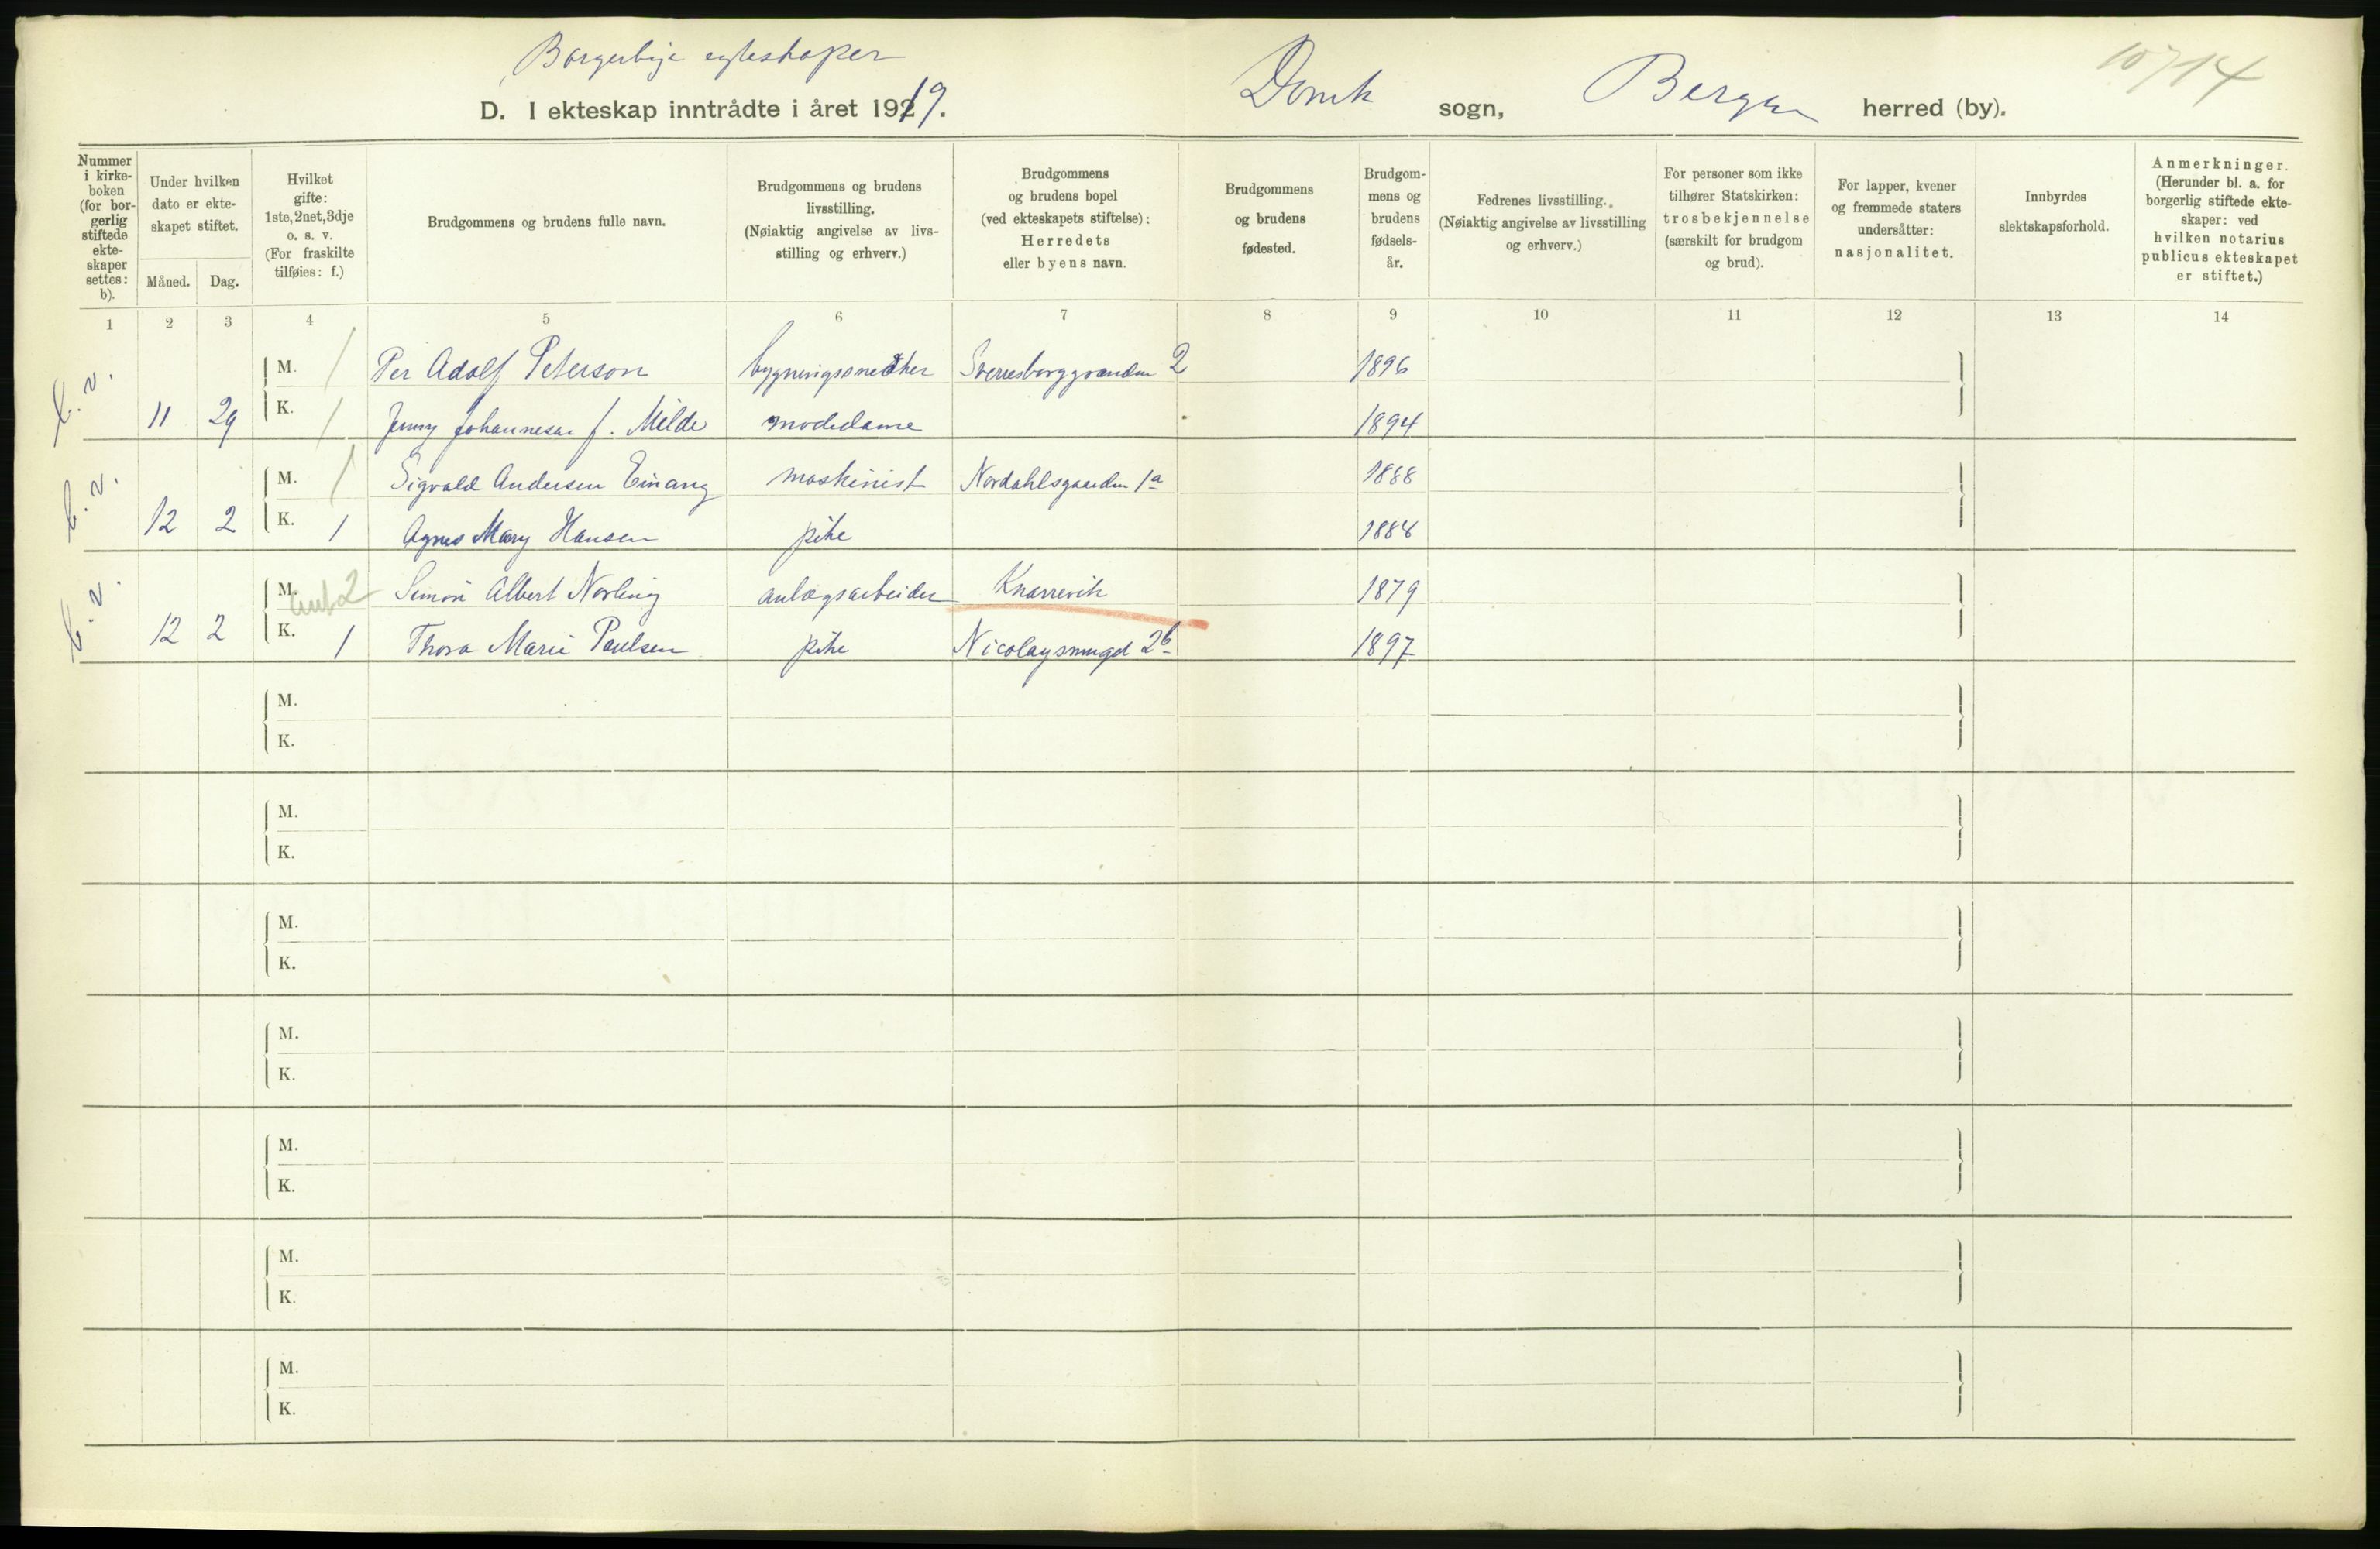 Borgerlige egteskaper
10714
D. I ekteskap inntrådte i året 1919.
Domk sogn, Bergen herred (by).
Nummer i kirke-boken (for bor-gerlig stiftede ekte-skaper settes: b).
Under hvilken dato er ekte-skapet stiftet.
Måned. Dag.
Hvilket gifte: 1ste, 2net, 3dje o. s. v. (For fraskilte tilføies: f.)
Brudgommens og brudens fulle navn.
Brudgommens og brudens livsstilling. (Nøiaktig angivelse av livs-stilling og erhverv.)
Brudgommens og brudens bopel (ved ekteskapets stiftelse): Herredets eller byens navn.
Brudgommens og brudens fødested.
Brudgom-mens og brudens fødsels-år.
Fedrenes livsstilling. (Nøiaktig angivelse av livsstilling og erhverv.)
For personer som ikke tilhører Statskirken: trosbekjennelse (særskilt for brudgom og brud).
For lapper, kvener og fremmede staters undersåtter: nasjonalitet.
Innbyrdes slektskapsforhold.
Anmerkninger. (Herunder bl. a. for borgerlig stiftede ekte-skaper: ved hvilken notarius publicus ekteskapet er stiftet.)
1 2 3 4 5 6 7 8 9 10 11 12 13 14
M. 1 Per Adolf Peterson bygningssnedker Sverresborggranden 2 1896
b. v. 11 29 K. 1 Jenny Johannesen f. Milde modedame 1894
M. 1 Sigvald Andersen Einang maskinist Nordahlsgaarden 1a 1888
b. v. 12 2 K. 1 Agnes Mary Hansen pike 1884
M. 2 Simon Albert Norling anlægsarbeider Knarrevik 1879
b. v. 12 2 K. 1 Thora Marie Paulsen pike Nicolaysmugd 2b 1897
M.
K.
M.
K.
M.
K.
M.
K.
M.
K.
M.
K.
M.
K.